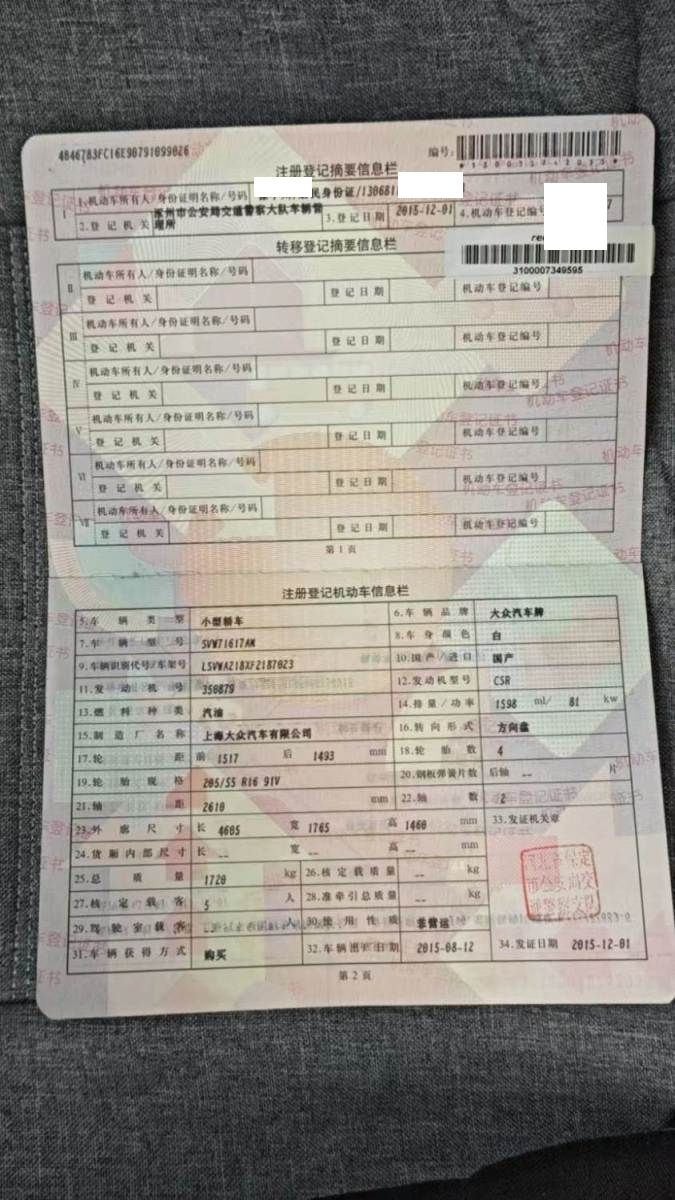 4046783FC16E90791099026
编号:
注册登记摘要信息栏
I 1.机动车所有人/身份证明名称/号码 民身份证/13068
2.登记机关 涿州市公安局交通警察大队车辆管理所 3.登记日期 2015-12-01 4.机动车登记编号 7
转移登记摘要信息栏
3100007349595
II 机动车所有人/身份证明名称/号码
登记机关 登记日期 机动车登记编号
III 机动车所有人/身份证明名称/号码
登记机关 登记日期 机动车登记编号
IV 机动车所有人/身份证明名称/号码
登记机关 登记日期 机动车登记编号
V 机动车所有人/身份证明名称/号码
登记机关 登记日期 机动车登记编号
VI 机动车所有人/身份证明名称/号码
登记机关 登记日期 机动车登记编号
VII 机动车所有人/身份证明名称/号码
登记机关 登记日期 机动车登记编号
第1页
注册登记机动车信息栏
5.车辆类型 小型轿车 6.车辆品牌 大众汽车牌
7.车辆型号 SVW71617AM 8.车身颜色 白
9.车辆识别代号/车架号 LSVWA218XF2187023 10.国产/进口 国产
11.发动机号 350879 12.发动机型号 CSR
13.燃料种类 汽油 14.排量/功率 1598 ml/ 81 kw
15.制造厂名称 上海大众汽车有限公司 16.转向形式 方向盘
17.轮距 前 1517 后 1493 mm 18.轮胎数 4
19.轮胎规格 205/55 R16 91V 20.钢板弹簧片数 后轴 -- 片
21.轴距 2610 mm 22.轴数 2
23.外廓尺寸 长 4605 宽 1765 高 1460 mm 33.发证机关章
24.货厢内部尺寸 长 -- 宽 -- 高 -- mm
25.总质量 1720 kg 26.核定载质量 -- kg
27.核定载客 5 人 28.准牵引总质量 -- kg
29.驾驶室载客 -- 人 30.使用性质 非营运
31.车辆获得方式 购买 32.车辆出厂日期 2015-08-12 34.发证日期 2015-12-01
第2页